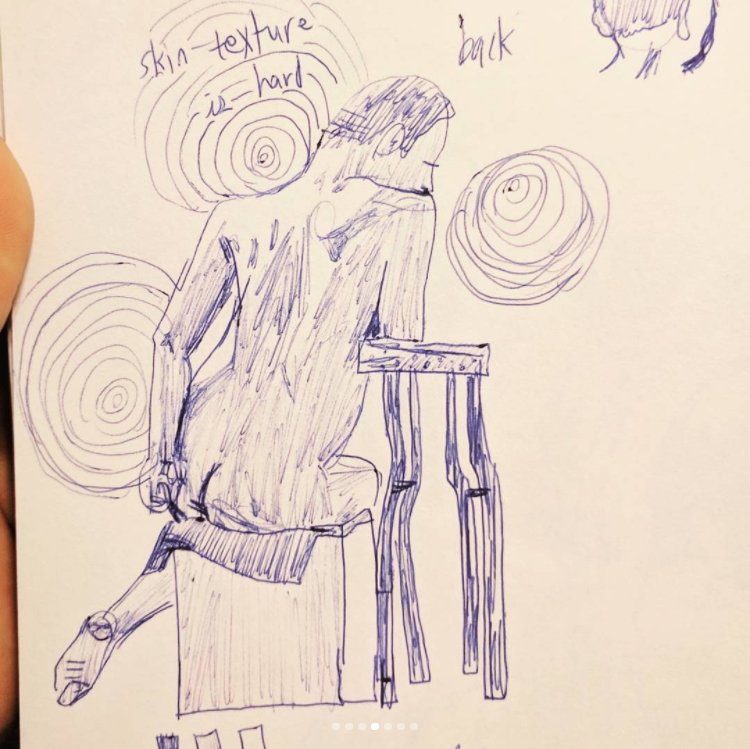 skin-texture
is-hard
back